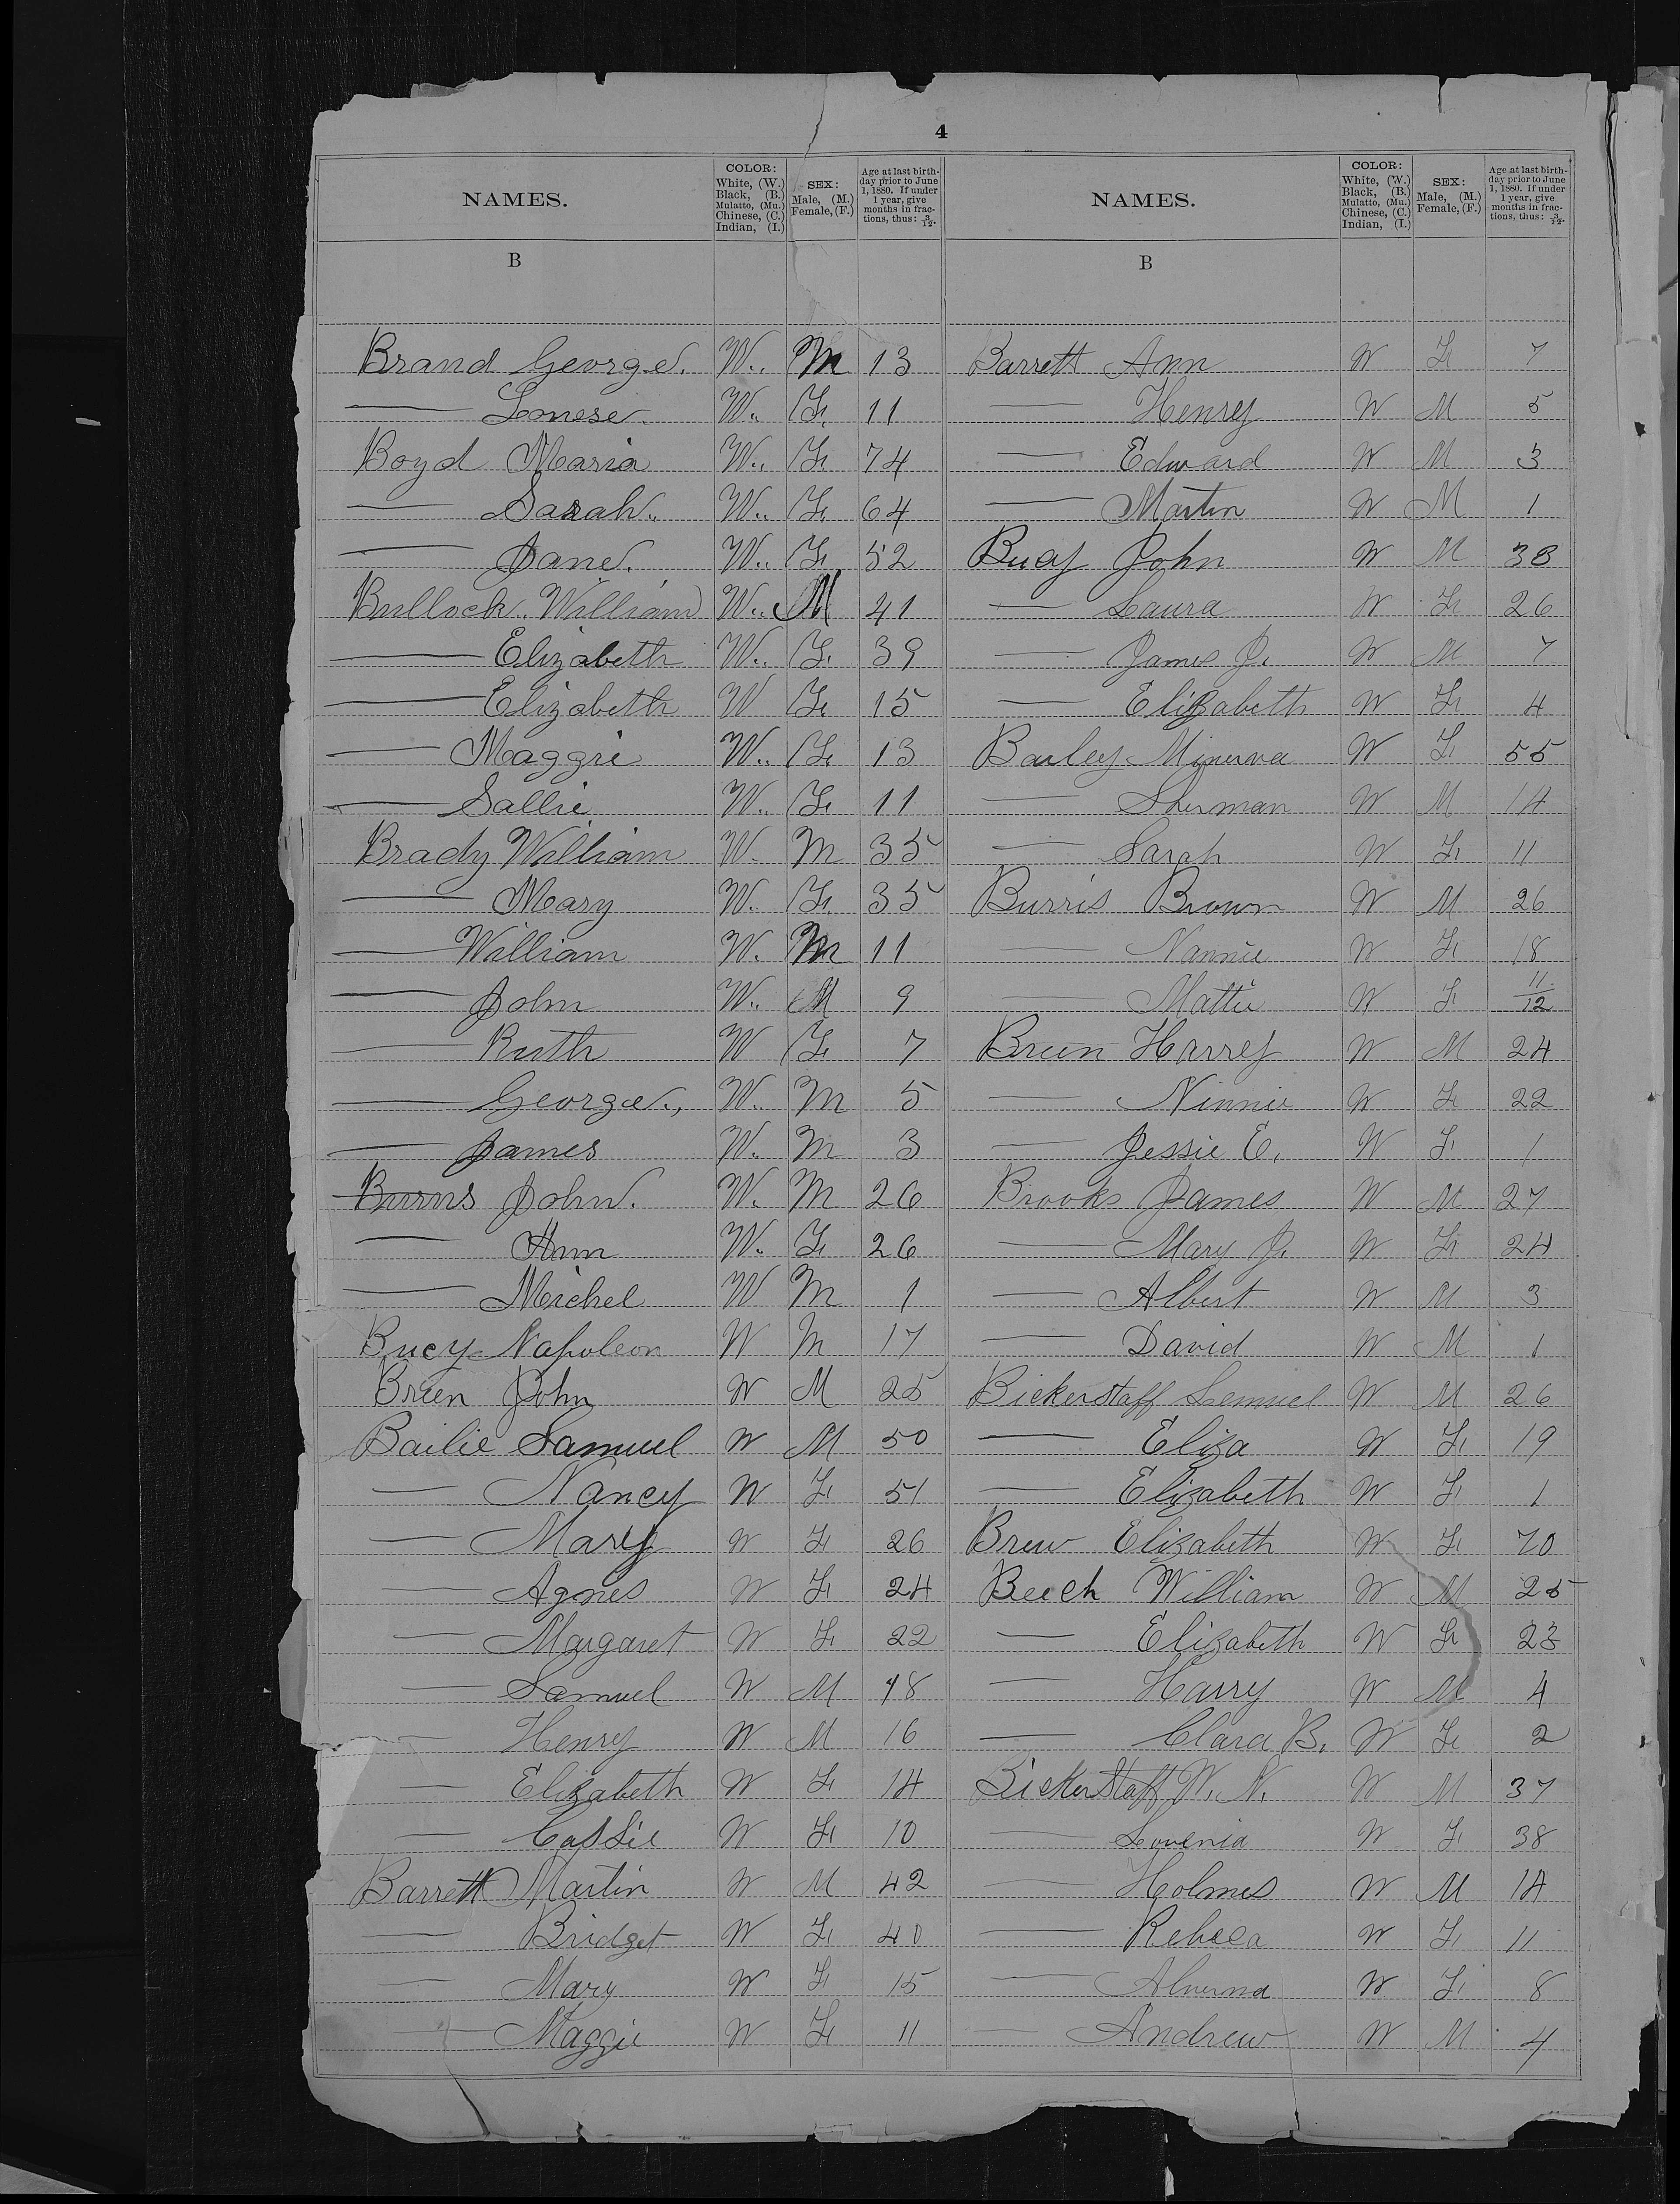 4
NAMES. COLOR: White, (W.) Black, (B.) Mulatto, (Mu.) Chinese, (C.) Indian, (I.) SEX: Male, (M.) Female, (F.) Age at last birthday prior to June 1, 1880. If under 1 year, give months in fractions, thus: 3/12.
B
Brand George. W.. M 13
— Lonese. W.. F. 11
Boyd Maria W.. F. 74
— Sarah.. W.. F. 64
— Jane. W.. F. 52
Bullock.. William W.. M 41
— Elizabeth W.. F. 39
— Elizabeth W F. 15
— Maggie W.. F. 13
— Sallie W.. F. 11
Brady William W. M 35
— Mary W. F. 35
— William W. M 11
— John W.. M 9
— Ruth W F. 7
— George., W.. M 5
— James W. M 3
Burns John. W. M 26
— Ann W. F. 26
— Michel W M 1
Bucy Napoleon W M 17
Breen John W M 25
Bailie Samuel W M 50
— Nancy W F 51
— Mary W F 26
— Agnes W F 24
— Margaret W F 22
— Samuel W M 18
— Henry W M 16
— Elizabeth W F 14
— Cassie W F 10
Barrett Martin W M 42
— Bridget W F 40
— Mary W F 15
— Maggie W F 11
NAMES. COLOR: White, (W.) Black, (B.) Mulatto, (Mu.) Chinese, (C.) Indian, (I.) SEX: Male, (M.) Female, (F.) Age at last birthday prior to June 1, 1880. If under 1 year, give months in fractions, thus: 3/12.
B
Barrett Ann W F 7
— Henry W M 5
— Edward W M 3
— Martin W M 1
Bucy John W M 38
— Laura W F 26
— James J. W M 7
— Elizabeth W F 4
Barley Minerva W F 55
— Sherman W M 14
— Sarah W F 11
Burris Brown W M 26
— Nannie W F 18
— Mattie W F 11/12
Breen Harry W M 24
— Ninnie W F 22
— Jessie E. W F 1
Brooks James W M 27
— Mary J. W F 24
— Albert W M 3
— David W M 1
Bickerstaff Lemuel W M 26
— Eliza W F 19
— Elizabeth W F 1
Brew Elizabeth W F 70
Beech William W M 25
— Elizabeth W F 23
— Harry W M 4
— Clara B. W F 2
Bickerstaff W. N. W M 37
— Lovenia W F 38
— Holmes W M 14
— Rebeca W F 11
— Alverna W F 8
— Andrew W M 4